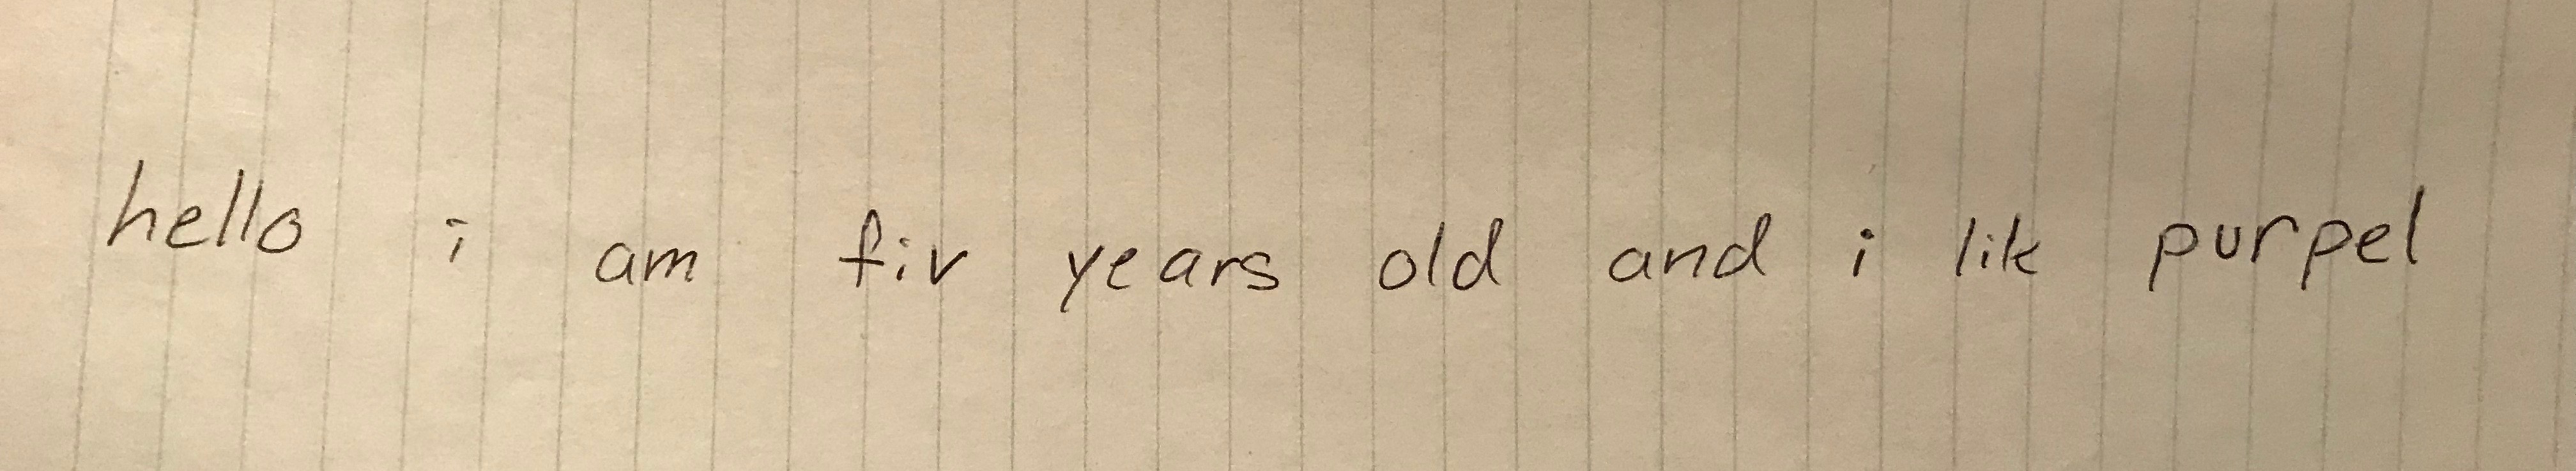 hello i am fiv years old and i lik purpel